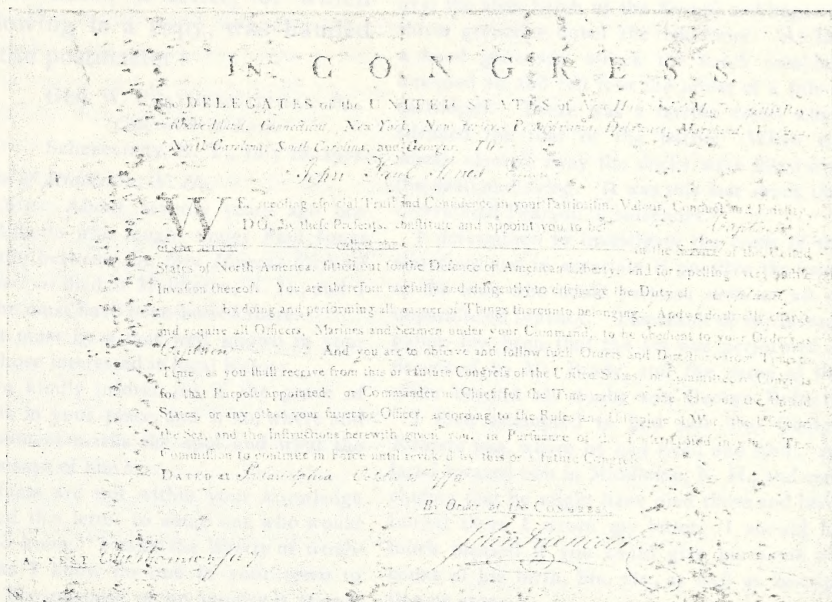 IN CONGRESS.
The DELEGATES of the UNITED STATES of New Hampshire, Massachusetts Bay,
Rhode Island, Connecticut, New York, New Jersey, Pennsylvania, Delaware, Maryland,
North Carolina, South Carolina, and Georgia, TO
John Paul Jones
WE, reposing especial Trust and Confidence in your Patriotism, Valour, Conduct and Fidelity,
DO, by these Presents, constitute and appoint you to be Captain
in the Service of the United
States of North America, fitted out for the Defence of American Liberty, and for repelling every hostile
Invasion thereof. You are therefore carefully and diligently to discharge the Duty of
by doing and performing all manner of Things thereunto belonging. And we do strictly charge
and require all Officers, Marines and Seamen under your Command, to be obedient to your Orders as
Captain And you are to observe and follow such Orders and Directions from Time to
Time, as you shall receive from this or a future Congress of the United States, or Committee of Congress
for that Purpose appointed, or Commander in Chief for the Time being of the Navy of the United
States, or any other your superior Officer, according to the Rules and Discipline of War, the Usage of
the Sea, and the Instructions herewith given you, in Pursuance of the Trust reposed in you. This
Commission to continue in Force until revoked by this or a future Congress.
DATED at Philadelphia October 1776
By Order of the CONGRESS,
John Hancock PRESIDENT
ATTEST Cha Thomson